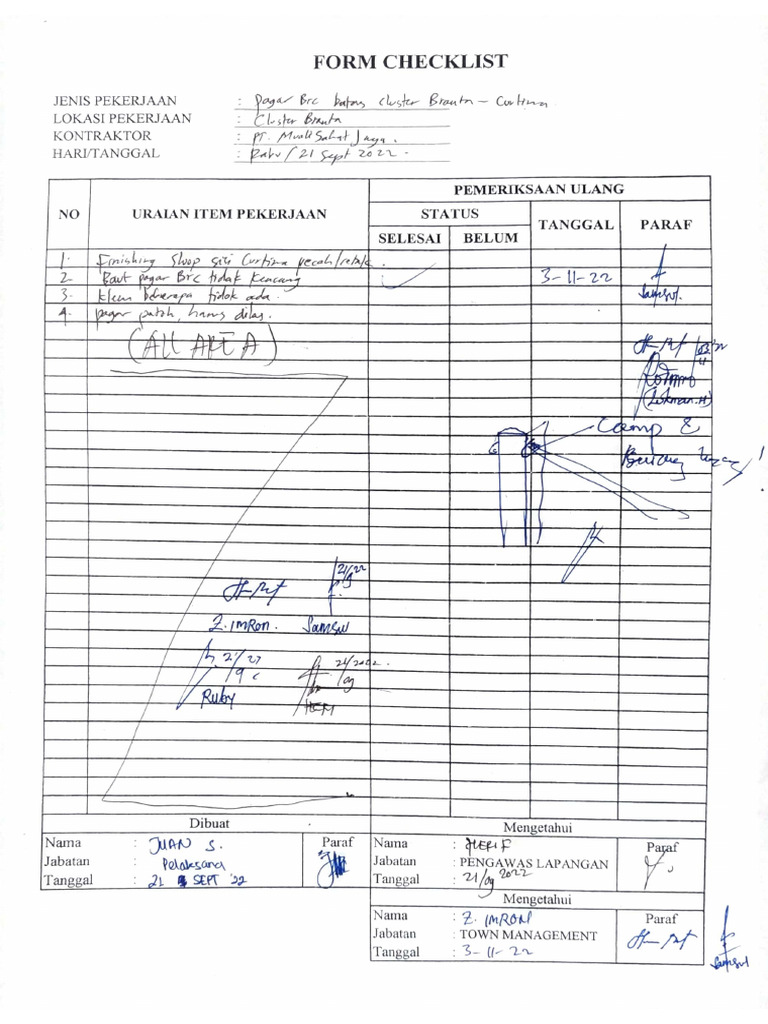 FORM CHECKLIST
JENIS PEKERJAAN : Pagar Brc batas cluster Branta - Cortina
LOKASI PEKERJAAN : Cluster Branta
KONTRAKTOR : PT. Jaya.
HARI/TANGGAL : Rabu / 21 Sept 2022.
NO URAIAN ITEM PEKERJAAN PEMERIKSAAN ULANG
STATUS TANGGAL PARAF
SELESAI BELUM
1. Finishing sisi Cortina pecah/retak.
2. Baut pagar Brc tidak kencang 3-11-22
3. klem beberapa tidak ada. Samsul
4. pagar patah, harus dilas.
(ALL AREA)
(Lukman.H)
Camp &
21/9 22
Z. IMRON. Samsul
Ruby
Dibuat
Nama : JUAN S. Paraf
Jabatan : Pelaksana
Tanggal : 21 SEPT '22
Mengetahui
Nama : Paraf
Jabatan : PENGAWAS LAPANGAN
Tanggal : 21/09 2022
Mengetahui
Nama : Z. IMRON Paraf
Jabatan : TOWN MANAGEMENT
Tanggal : 3-11-22
Samsul